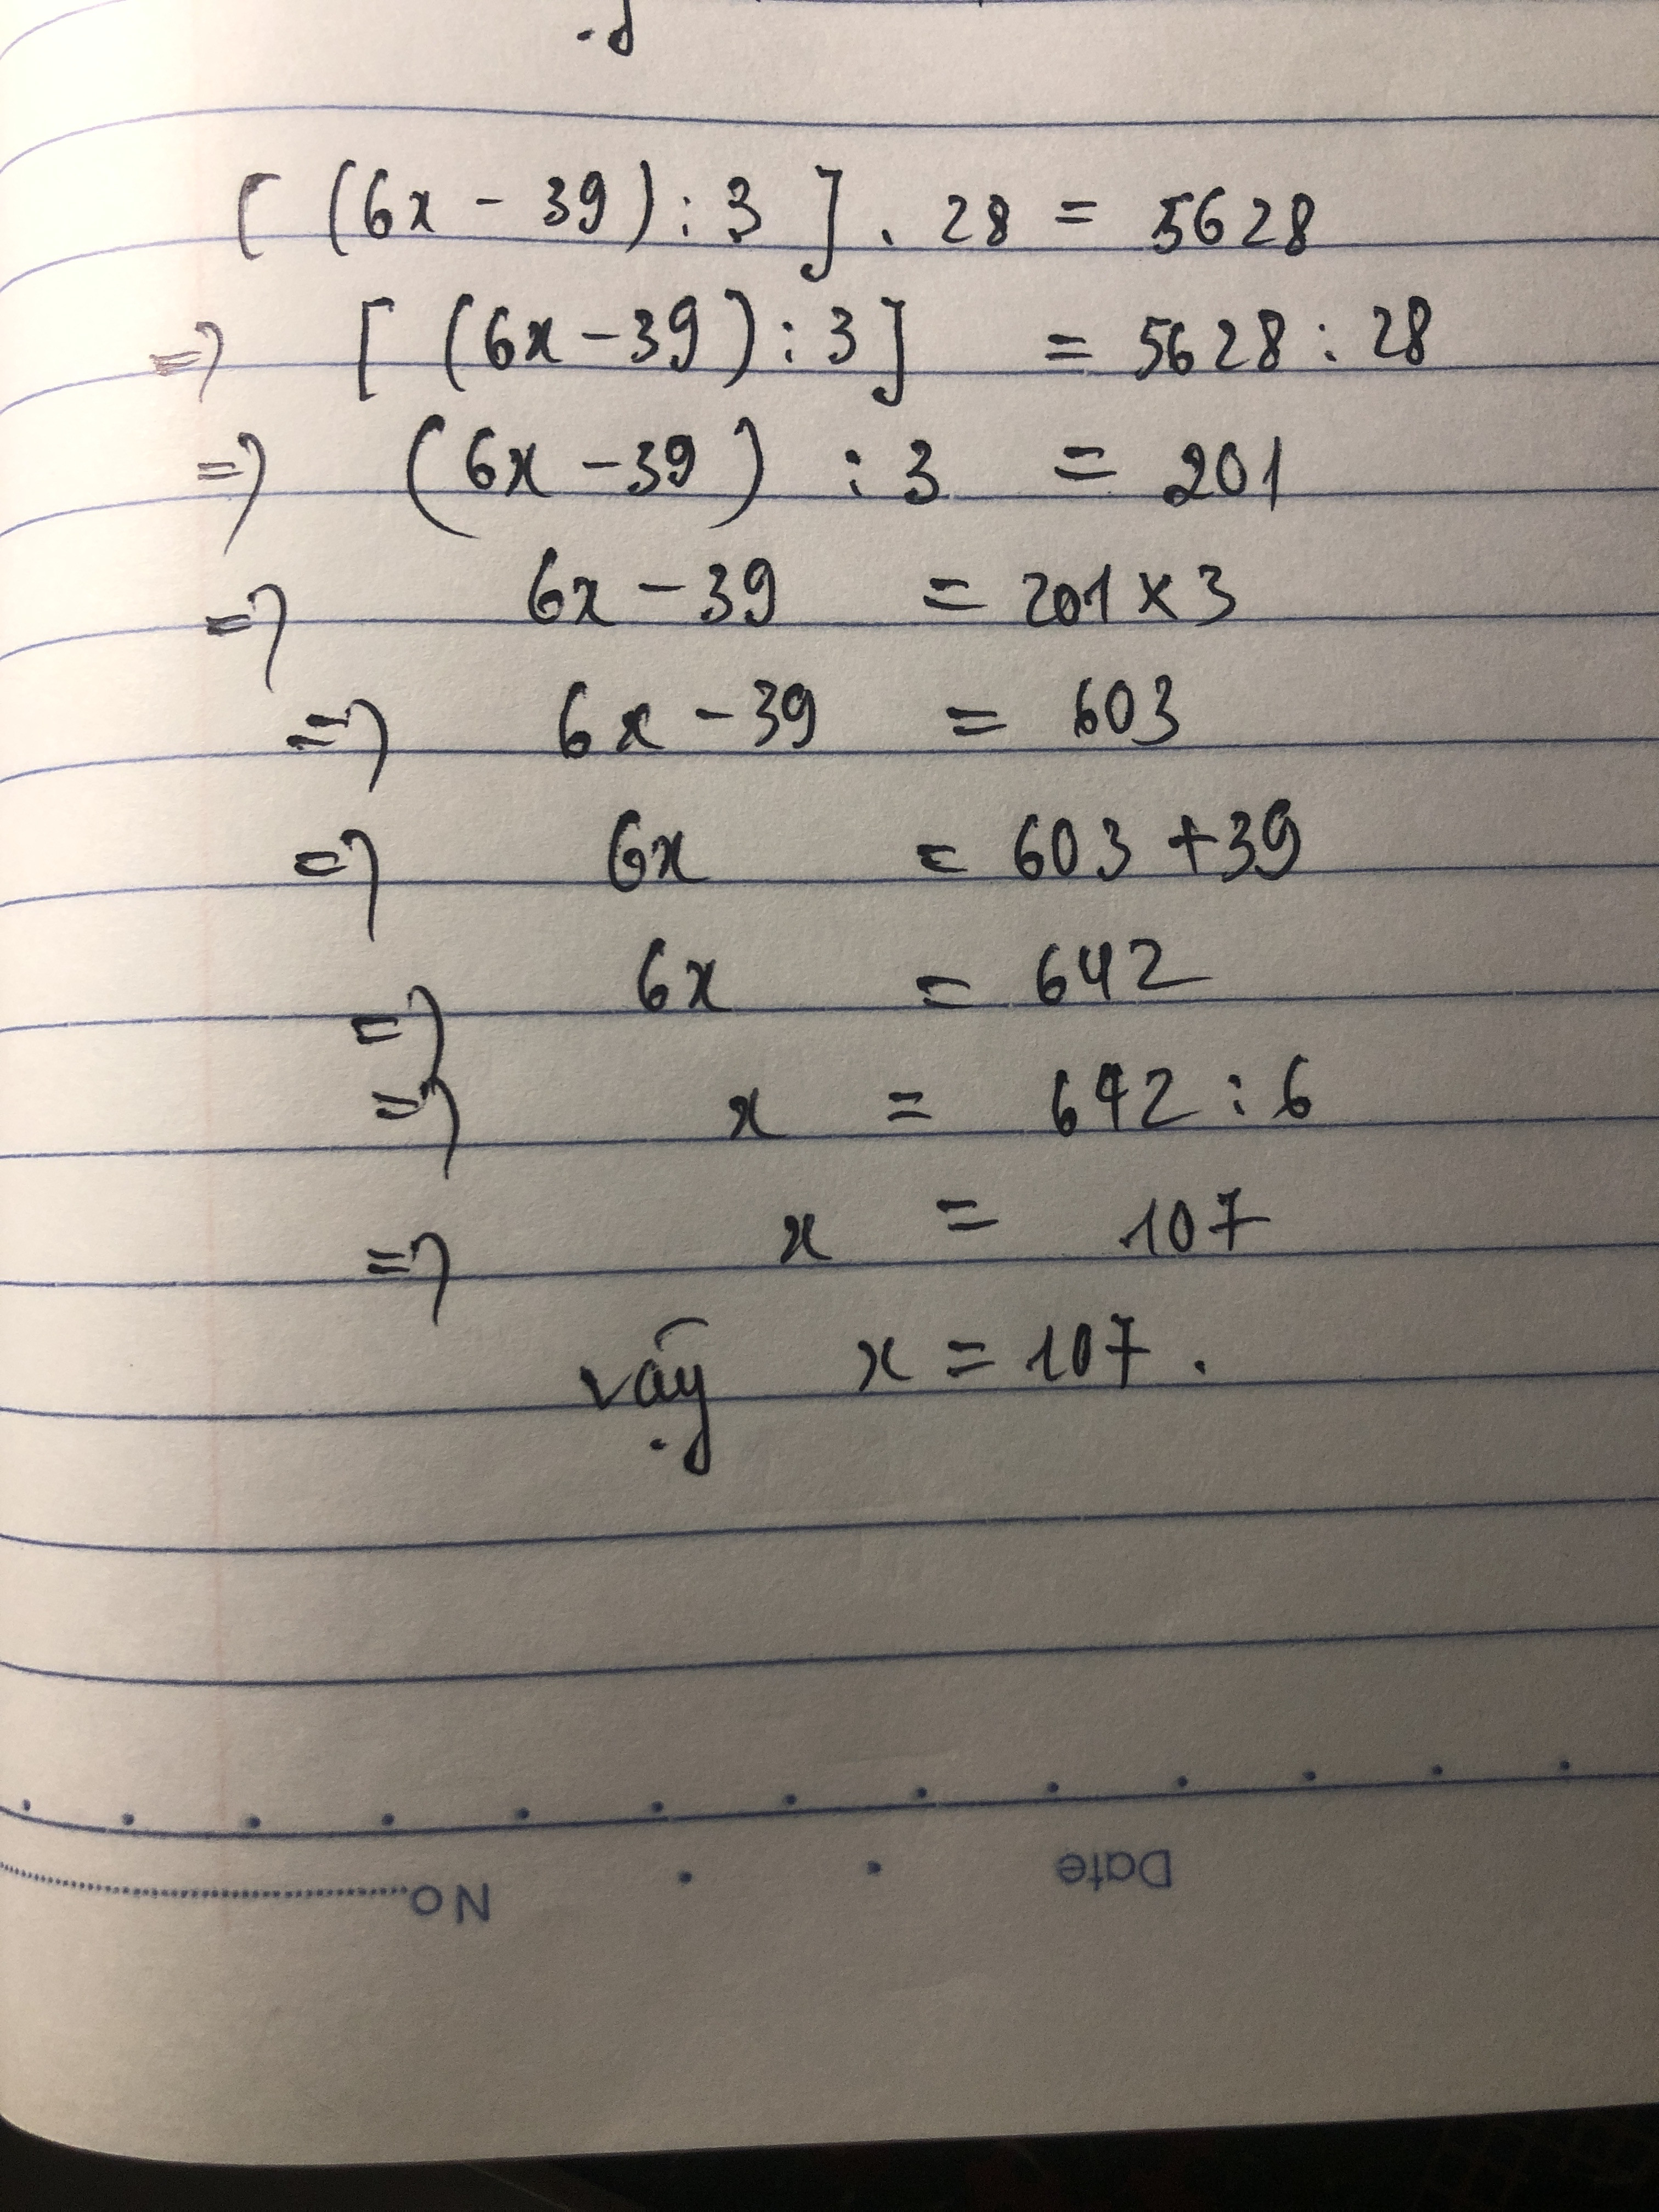 [ (6x - 39) : 3 ] . 28 = 5628
=> [ (6x - 39) : 3 ] = 5628 : 28
=> (6x - 39) : 3 = 201
=> 6x - 39 = 201 x 3
=> 6x - 39 = 603
=> 6x = 603 + 39
=> 6x = 642
=> x = 642 : 6
=> x = 107
vậy x = 107 .
Date
No